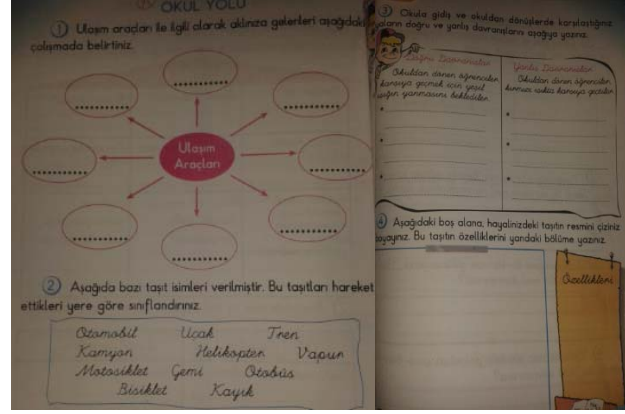 OKUL YOLU
1 Ulaşım araçları ile ilgili olarak aklınıza gelenleri aşağıdaki
çalışmada belirtiniz.
Ulaşım
Araçları
2 Aşağıda bazı taşıt isimleri verilmiştir. Bu taşıtları hareket
ettikleri yere göre sınıflandırınız.
Otomobil Uçak Tren
Kamyon Helikopter Vapur
Motosiklet Gemi Otobüs
Bisiklet Kayık
3 Okula gidiş ve okuldan dönüşlerde karşılaştığınız
doğru ve yanlış davranışları aşağıya yazınız.
Doğru Davranışlar
Okuldan dönen öğrenciler
karşıya geçmek için yeşil
ışığın yanmasını beklediler.
Yanlış Davranışlar
Okuldan dönen öğrenciler
kırmızı ışıkta karşıya geçtiler.
4 Aşağıdaki boş alana, hayalinizdeki taşıtın resmini çiziniz
boyayınız. Bu taşıtın özelliklerini yandaki bölüme yazınız.
Özellikleri